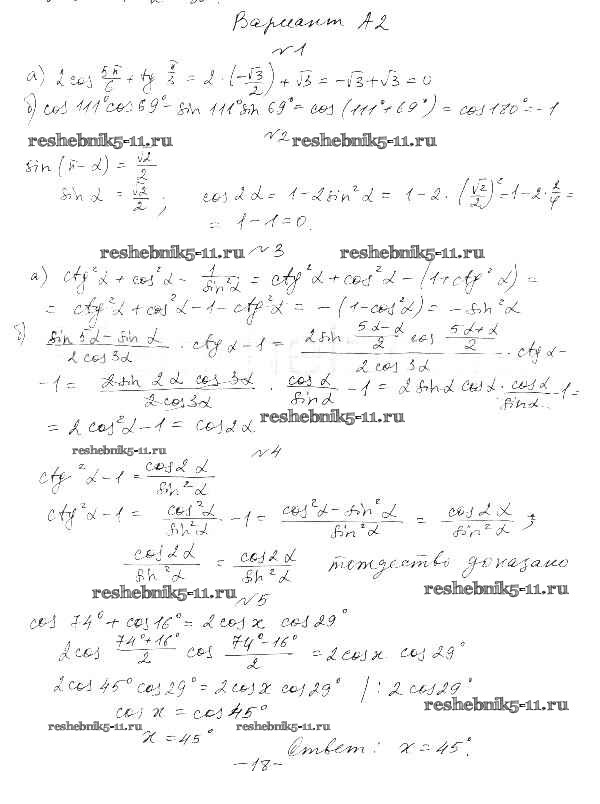 Вариант А2
№1
а) 2 cos 5π/6 + tg π/3 = 2 · (-√3/2) + √3 = -√3 + √3 = 0
б) cos 111° cos 69° - sin 111° sin 69° = cos (111° + 69°) = cos 180° = -1
reshebnik5-11.ru №2 reshebnik5-11.ru
sin (π - α) = √2/2
sin α = √2/2 ; cos 2α = 1 - 2 sin²α = 1 - 2 · (√2/2)² = 1 - 2 · 2/4 =
= 1 - 1 = 0.
reshebnik5-11.ru №3 reshebnik5-11.ru
а) ctg²α + cos²α - 1/sin²α = ctg²α + cos²α - (1 + ctg²α) =
= ctg²α + cos²α - 1 - ctg²α = - (1 - cos²α) = - sin²α
б) (sin 5α - sin α)/(2 cos 3α) · ctg α - 1 = (2 sin (5α - α)/2 cos (5α + α)/2)/(2 cos 3α) · ctg α -
- 1 = (2 sin 2α cos 3α)/(2 cos 3α) · cos α/sin α - 1 = 2 sin α cos α · cos α/sin α - 1 =
= 2 cos²α - 1 = cos 2α reshebnik5-11.ru
reshebnik5-11.ru №4
ctg²α - 1 = cos 2α/sin²α
ctg²α - 1 = cos²α/sin²α - 1 = (cos²α - sin²α)/sin²α = cos 2α/sin²α ;
cos 2α/sin²α = cos 2α/sin²α тождество доказано
reshebnik5-11.ru №5 reshebnik5-11.ru
cos 74° + cos 16° = 2 cos x cos 29°
2 cos (74° + 16°)/2 cos (74° - 16°)/2 = 2 cos x cos 29°
2 cos 45° cos 29° = 2 cos x cos 29° / : 2 cos 29°
cos x = cos 45° reshebnik5-11.ru
reshebnik5-11.ru reshebnik5-11.ru
x = 45° Ответ: x = 45°.
-18-